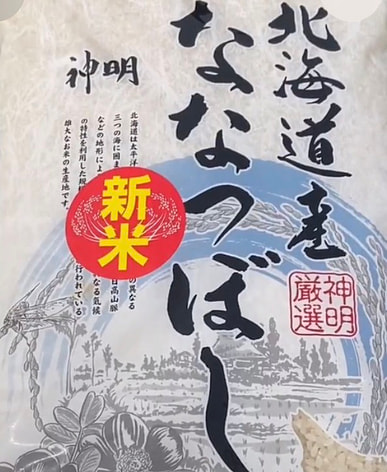 北海道産
ななつぼし
神明
北海道は太平洋
三つの海に囲ま
などの地形によ
の特性を利用した
雄大なお米の生産地です。
の異なる
日高山脈
なる気候
行われている
新米
神明
厳選